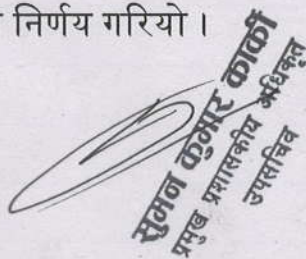 निर्णय गरियो ।
सुमन कुमार कार्की
प्रमुख प्रशासकीय अधिकृत
उपसचिव